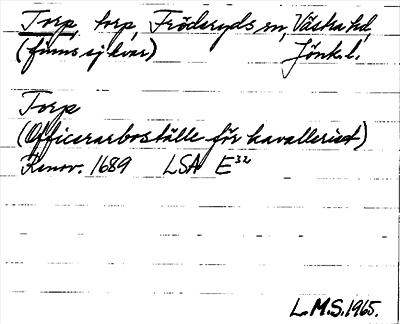 Torp, torp, Fröderyds sn, Västra hd,
(finns ej kvar) Jönk. l.
Torp
(Officersboställe för kavallerist)
Renov. 1689 LSA E32
L.M.S. 1965.